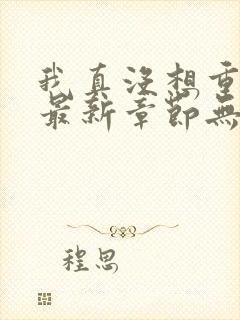 我真没想重
最新章節無
程思